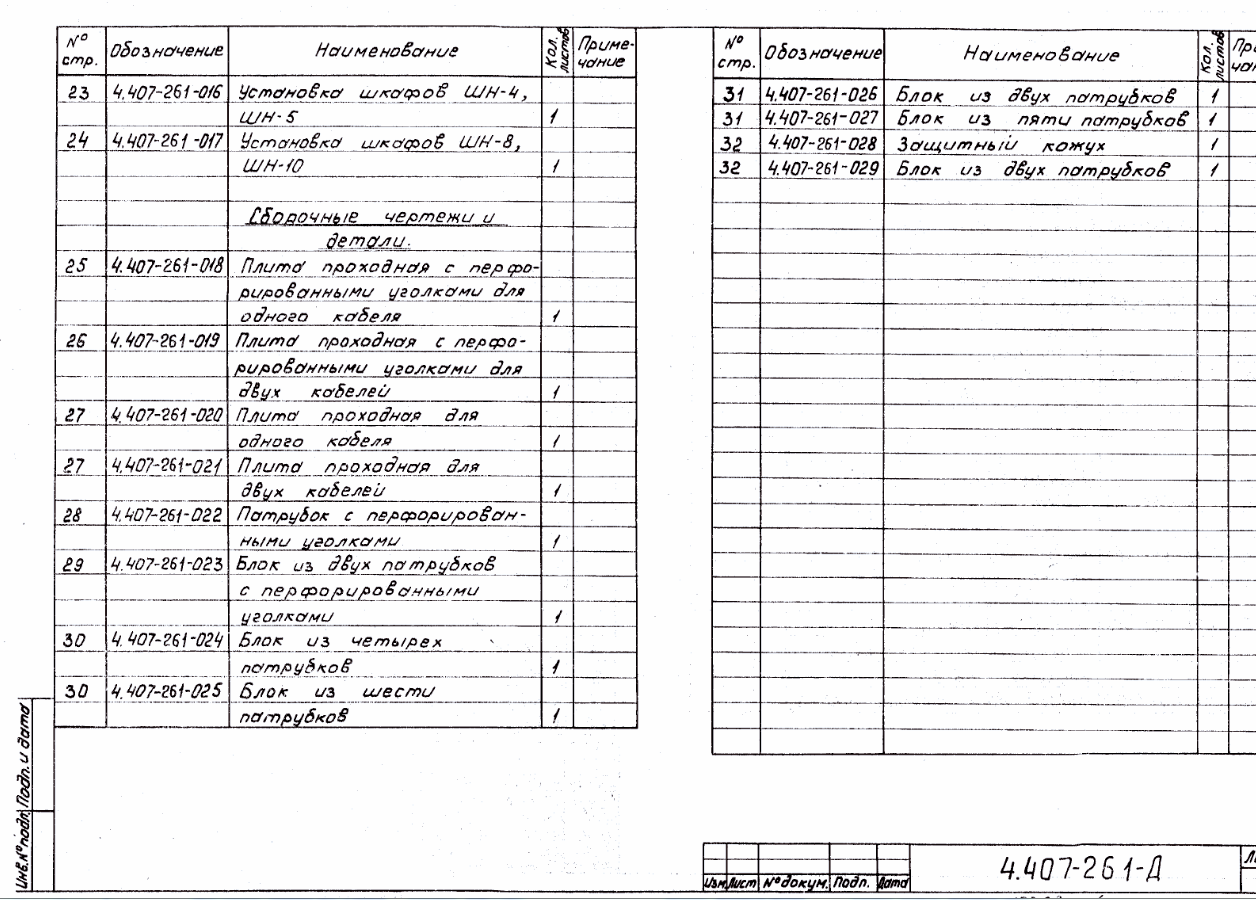 № стр. Обозначение Наименование Кол. листов Приме-чание
23 4.407-261-016 Установка шкафов ШН-4,
ШН-5 1
24 4.407-261-017 Установка шкафов ШН-8,
ШН-10 1
Сборочные чертежи и
детали.
25 4.407-261-018 Плита проходная с перфо-
рированными уголками для
одного кабеля 1
26 4.407-261-019 Плита проходная с перфо-
рированными уголками для
двух кабелей 1
27 4.407-261-020 Плита проходная для
одного кабеля 1
27 4.407-261-021 Плита проходная для
двух кабелей 1
28 4.407-261-022 Патрубок с перфорирован-
ными уголками 1
29 4.407-261-023 Блок из двух патрубков
с перфорированными
уголками 1
30 4.407-261-024 Блок из четырех
патрубков 1
30 4.407-261-025 Блок из шести
патрубков 1
№ стр. Обозначение Наименование Кол. листов
31 4.407-261-026 Блок из двух патрубков 1
31 4.407-261-027 Блок из пяти патрубков 1
32 4.407-261-028 Защитный кожух 1
32 4.407-261-029 Блок из двух патрубков 1
Инв.№подл. Подп. и дата
4.407-261-Д
Изм. Лист № докум. Подп. Дата